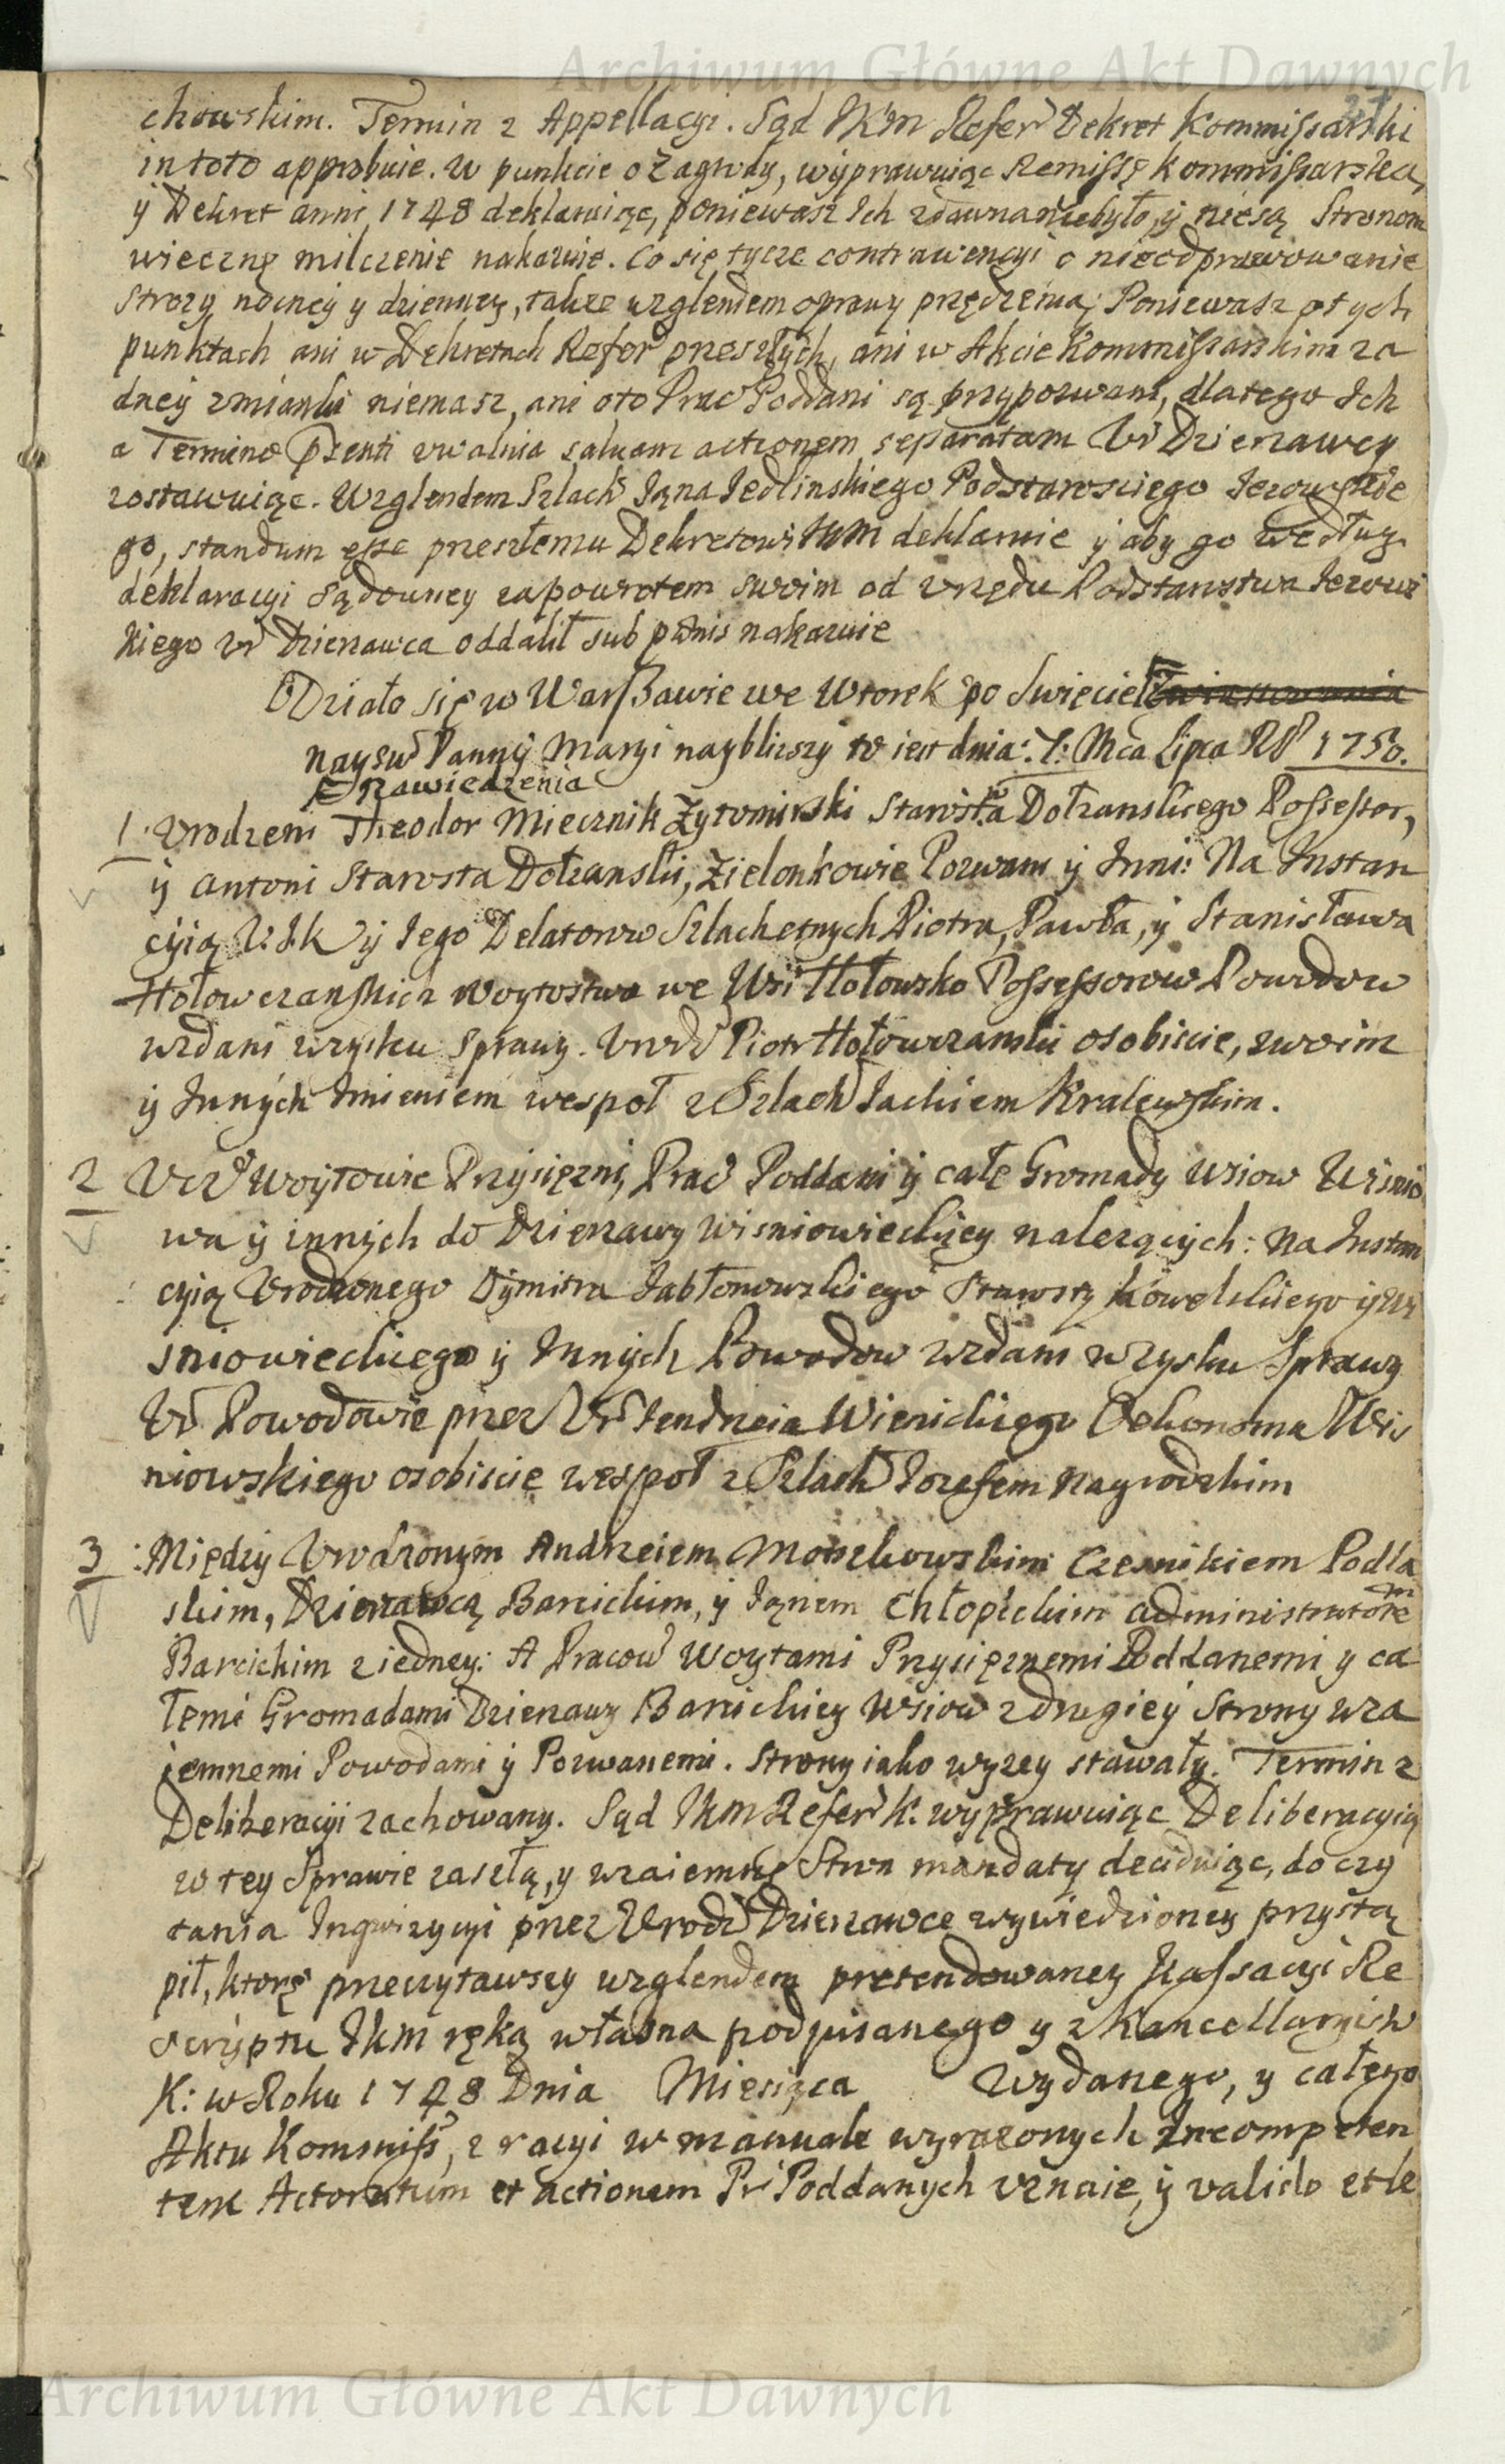 Archiwum Główne Akt Dawnych
27
chowskim. Termin z Appellacyi. Sąd JKM Refer Dekret Kommissarski
in toto approbuie. W punkcie o Zagrody, wyprawuiąc Remissę Kommissarską,
y Dekret anni 1748 deklaruiąc, poniewasz Ich zdawna niebyło, y niesą Stronom
wieczne milczenie nakazuie. Co się tycze contrawencyi o nieodprawowanie
Strozy nocney y dzienney, takze wzglendem oprawy przędzenia; Poniewasz o tych
punktach ani w Dekretach Refer przeszłych, ani w Akcie Kommissarskim za
dney zmianki niemasz, ani oto Prac Poddani są przypozwani, dlatego Ich
a Termino pſenti uwalnia salvam actionem separatam Ur Dzierzawcy
zostawuiąc. Wzglendem Szlach Jana Jedlinskiego Podstarosciego Jezowskie
go, standum esse przeszłemu Dekretowi JKM deklaruie y aby go według
deklaracyi sądowney zapowrotem swoim od Urzędu Podstarostwa Jezows
kiego Ur Dzierzawca oddalił sub pœnis nakazuie
Działo się w Warszawie we Wtorek po Swięcie
Nayśw Panny Maryi naybliższy to iest dnia: 7: Mca Lipca RP 1750.
Nawiedzenia
1. Urodzeni Theodor Miecznik Zytomirski Starostwa Dołzanskiego Possessor,
y Antoni Starosta Dołzanski, Zielonkowie Pozwani y Inni: Na Instan
cyią U.I.K y Jego Delatorow Szlachetnych Piotra, Pawła, y Stanisława
Hołowczanskich Woytostwa we Wsi Hołowsko Possessorow Powodow
wzdani wzysku Sprawy. Urodz Piotr Hołowczanski osobiscie, swoim
y Innych Imieniem wespoł z Szlach Jackiem Kralewskim.
2 Ucz Woytowie Przysięzni, Prac Poddani y całe Gromady Wsiow Wisnio
wa y innych do Dzierzawy Wisniowieckiey nalezących: Na Instan
cyią Urodzonego Dymitra Jabłonowskiego Starosty Kowelskiego y Wi
sniowieckiego y Innych Powodow wzdani wzysku Sprawy
Ur Powodowie przez Ur Jendrzeia Wienickiego Oekonoma Wis
niowskiego osobiscie wespoł z Szlach Jozefem Nagrodzkim
3 : Między Urodzonym Andrzeiem Moszkowskim Czesnikiem Podla
skim, Dzierzawcą Barcickim, y Janem Chłopickim administratorem
Barcickim ziedney: A Pracow Woytami Przysięznemi Poddanemi y ca
łemi Gromadami Dzierzawy Barcickiey Wsiow zdrugiey Strony wza
iemnemi Powodami y Pozwanemi. Strony iako wyzey stawały. Termin z
Deliberacyi zachowany. Sąd JKM Refer K. wyprawuiąc Deliberacyią
w tey Sprawie zaszłą, y wzaiemne Stron mandaty deciduiąc, do czy
tania Inqwizycyi przez Urodz Dzierzawce wywiedzioney przystą
pił, ktorę przeczytawszy wzglendem pretendowaney Kassacyi Re
scryptu JKM ręką własna podpisanego y z Kancellaryi
K: w Roku 1748 Dnia Miesiąca wydanego, y całego
Aktu Kommiss, z racyi w manuale wyrazonych Incompeten
tem Actoratum et actionem Pr Poddanych uznaie, y valido et le
Archiwum Główne Akt Dawnych